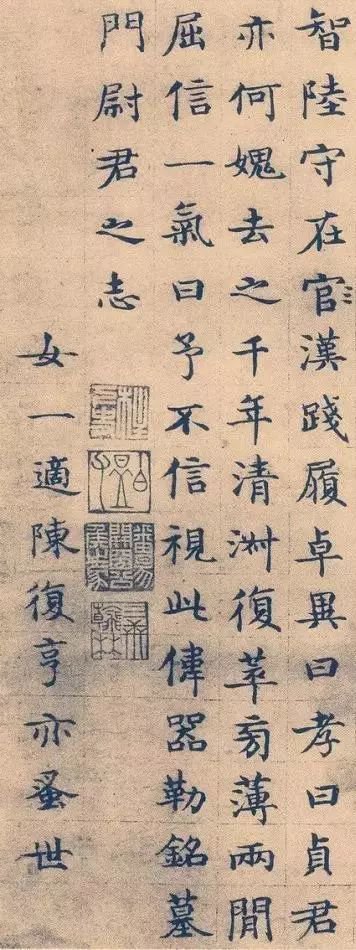 智陸守在官〻漢踐履卓異曰孝曰貞君
亦何媿去之千年清淑復萃旁薄兩閒
屈信一氣曰予不信視此偉器勒銘墓
門尉君之志
女一適陳復亨亦蚤世